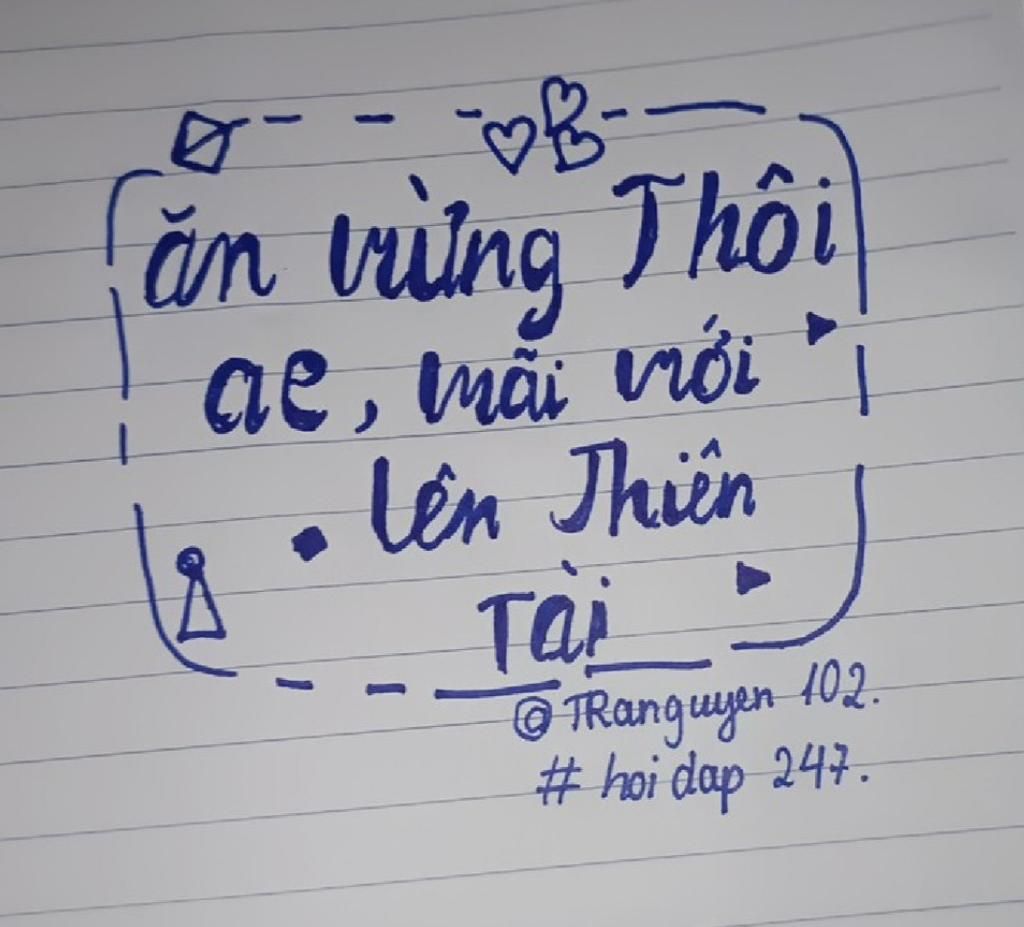 ăn vừng Thôi
ae, mãi mới
lên Thiên
Tài
@TRanguyen 102.
# hoi dap 247.